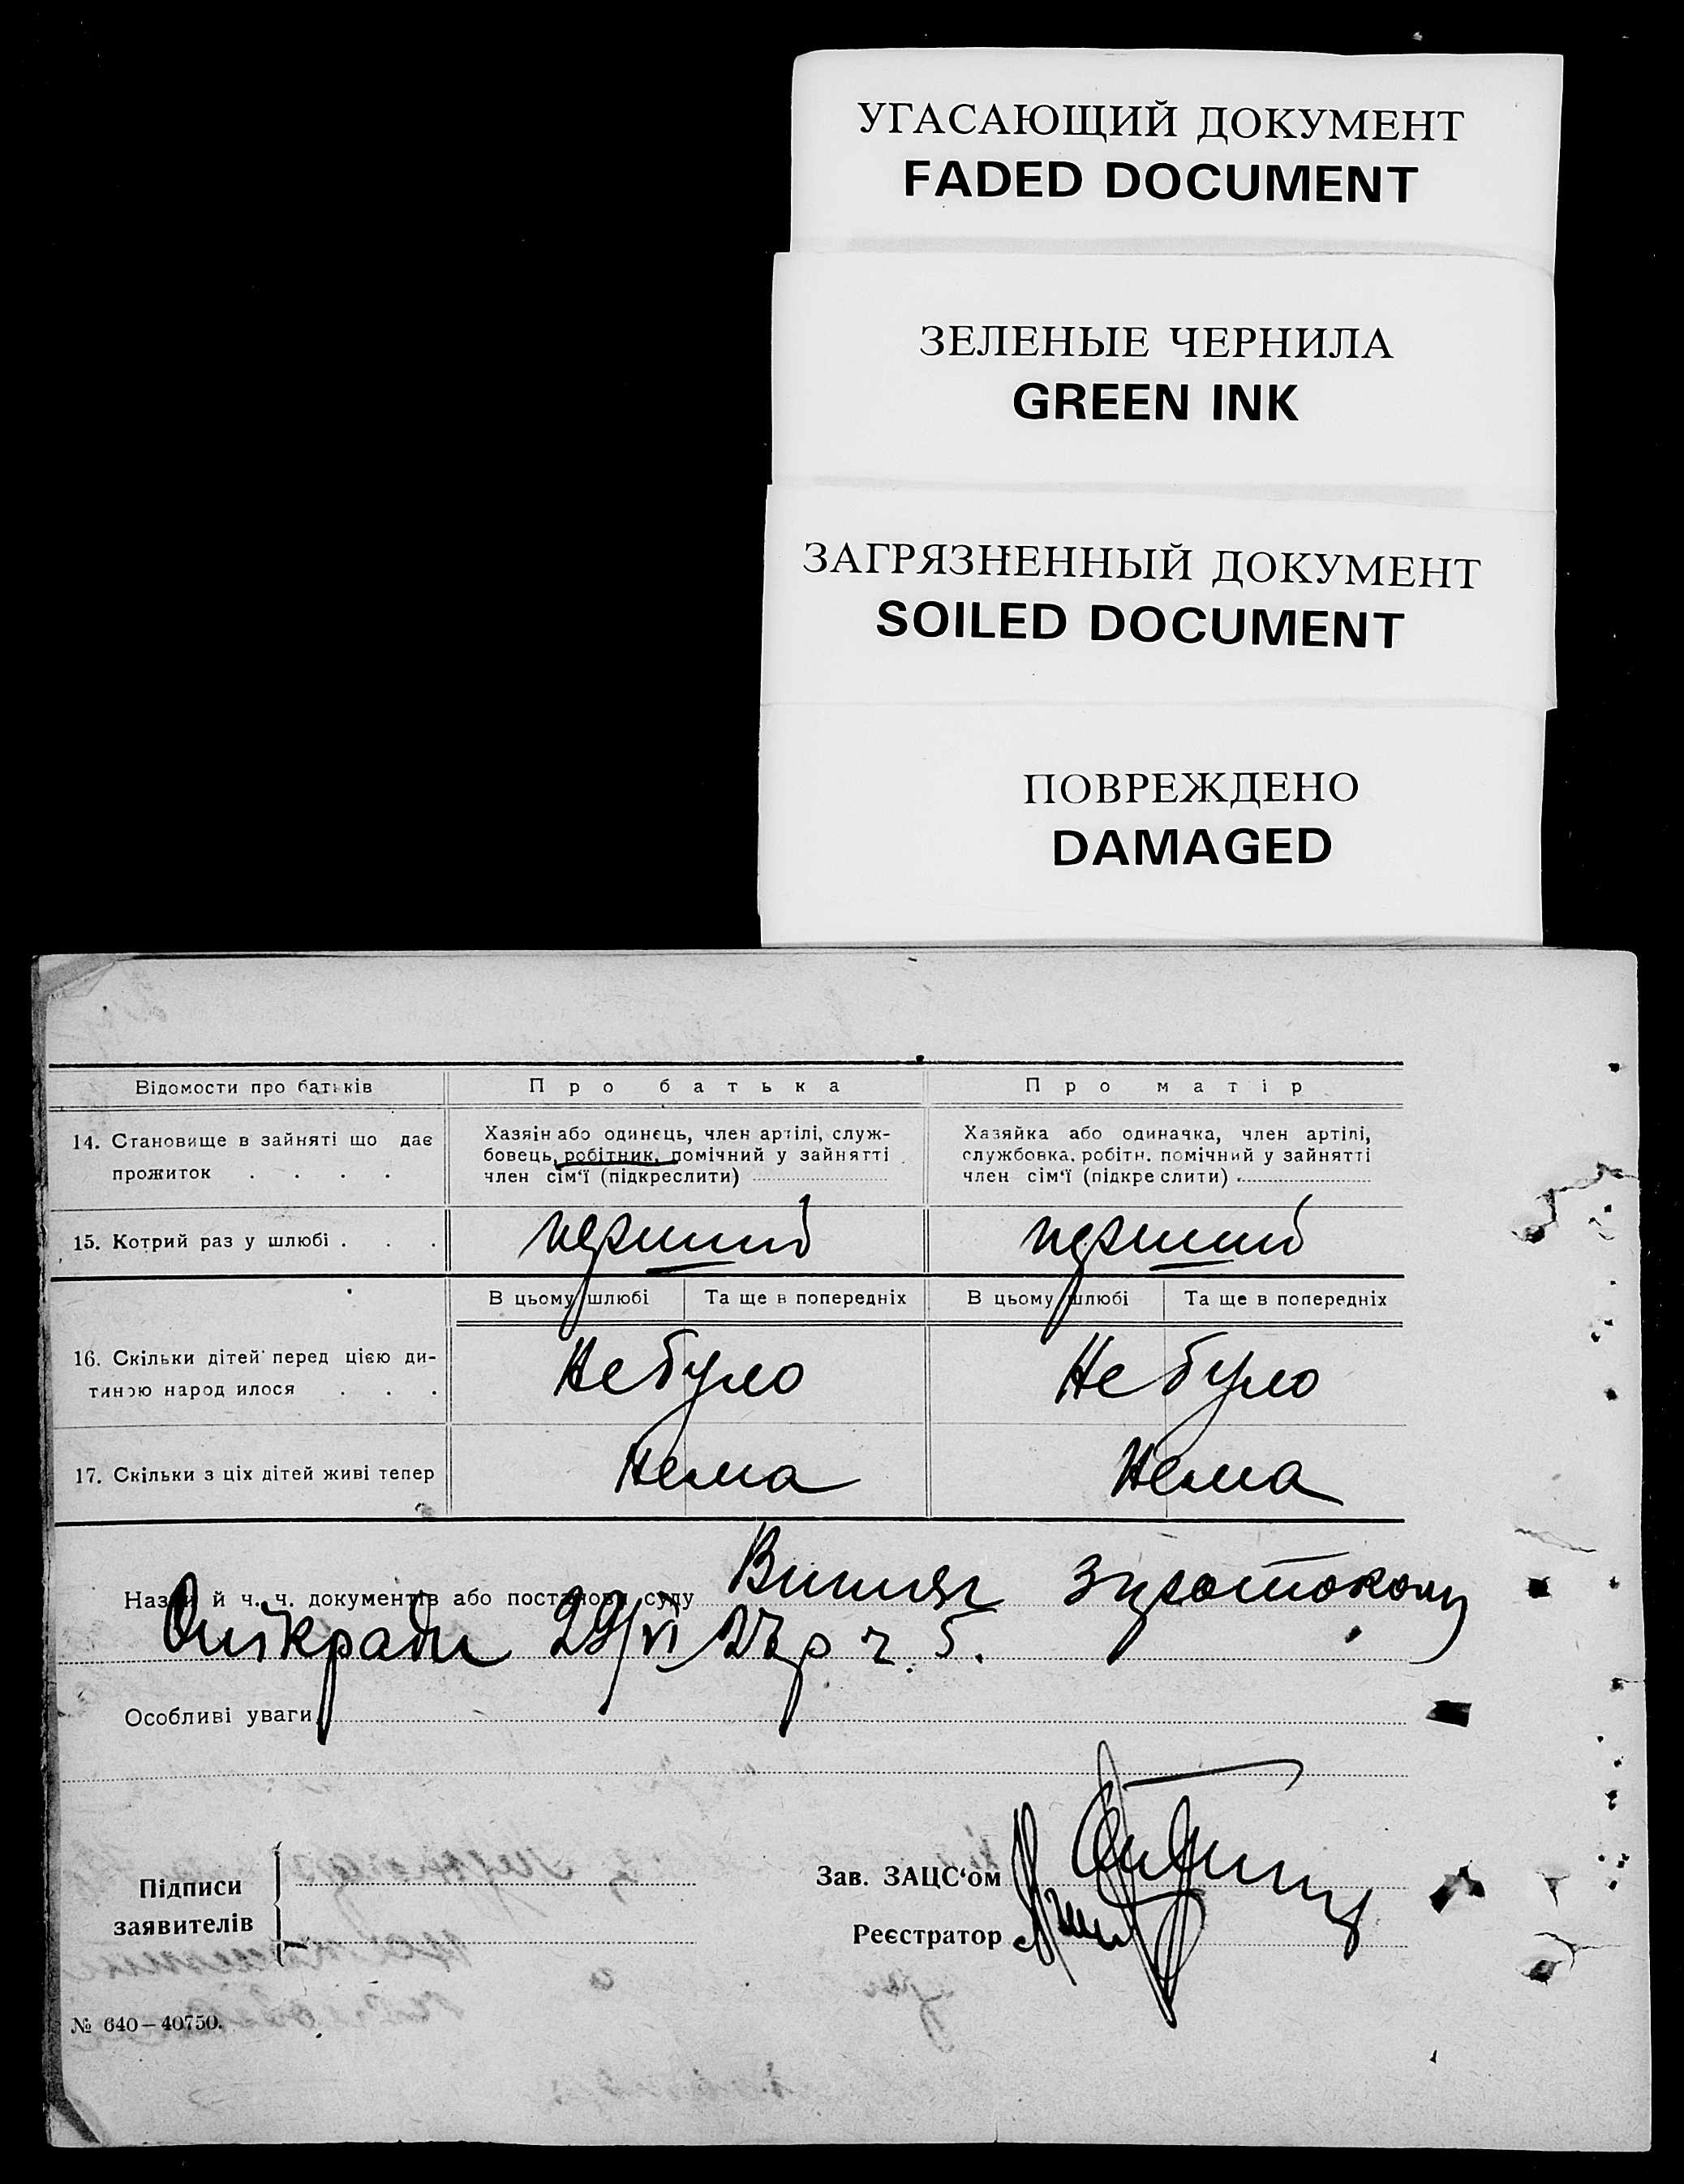 УГАСАЮЩИЙ ДОКУМЕНТ
FADED DOCUMENT
ЗЕЛЕНЫЕ ЧЕРНИЛА
GREEN INK
ЗАГРЯЗНЕННЫЙ ДОКУМЕНТ
SOILED DOCUMENT
ПОВРЕЖДЕНО
DAMAGED
Відомости про батьків
Про батька
Про матір
14. Становище в зайняті що дає
прожиток . . . .
Хазяін або одинець, член артілі, служ-
бовець, робітник, помічний у зайнятті
член сім‘ї (підкреслити)
Хазяйка або одиначка, член артілі,
службовка, робітн. помічний у зайнятті
член сім‘ї (підкреслити)
15. Котрий раз у шлюбі . . .
перший
перший
В цьому шлюбі
Та ще в попередніх
В цьому шлюбі
Та ще в попередніх
16. Скільки дітей перед цією ди-
тиною народилося . . .
Не було
Не було
17. Скільки з ціх дітей живі тепер
Нема
Нема
Назви й ч. ч. документів або постанови суду Витяг з протокому
Опікради 29/VI 27 р ч. 5.
Особливі уваги
Підписи
заявителів
Зав. ЗАЦС‘ом
Реєстратор
№ 640—40750.